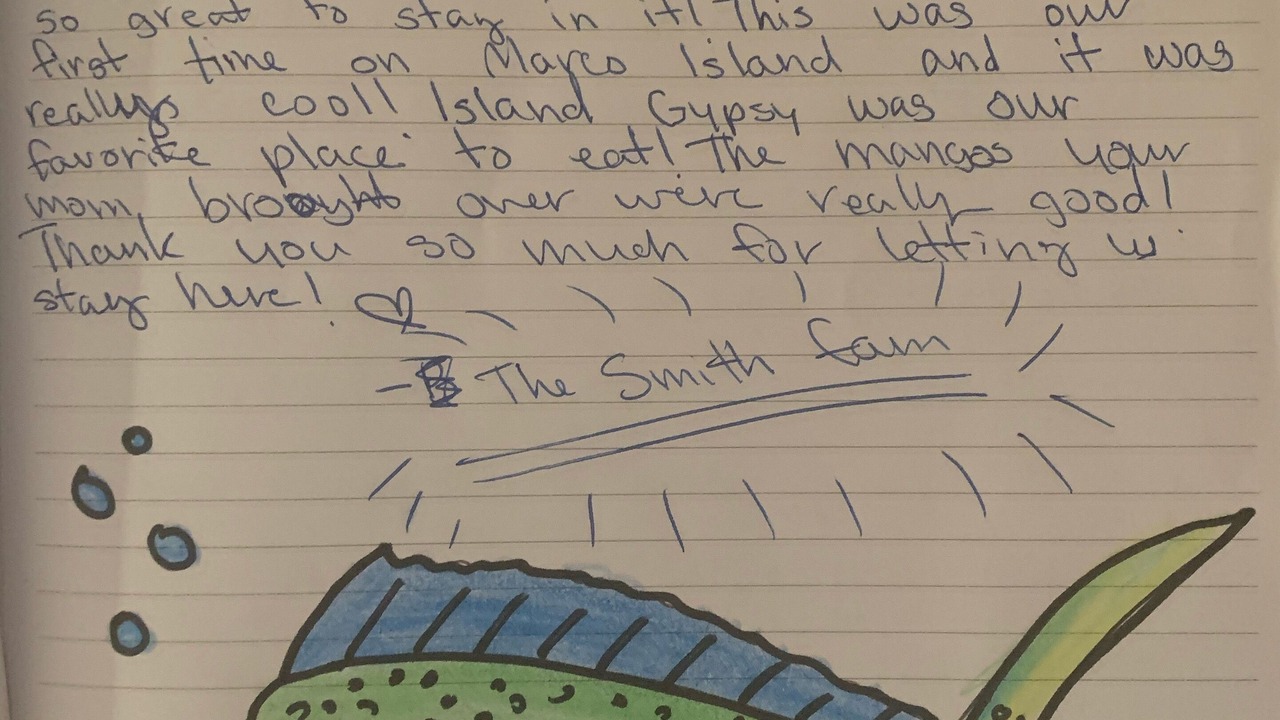 so great to stay in it! This was our
first time on Marco Island and it was
really cool! Island Gypsy was our
favorite place to eat! The mangos your
mom brought over were really good!
Thank you so much for letting us
stay here!
- The Smith fam